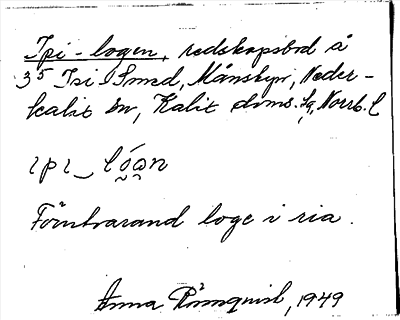 Ipi-logen, redskapsbod å
3⁵ Isi Smed, Månsbyn, Neder-
kalix sn, Kalix doms. sg, Norrb. l
ɩpɩ‿lóan
Förutvarand loge i ria.
Anna Rönnqvist, 1949